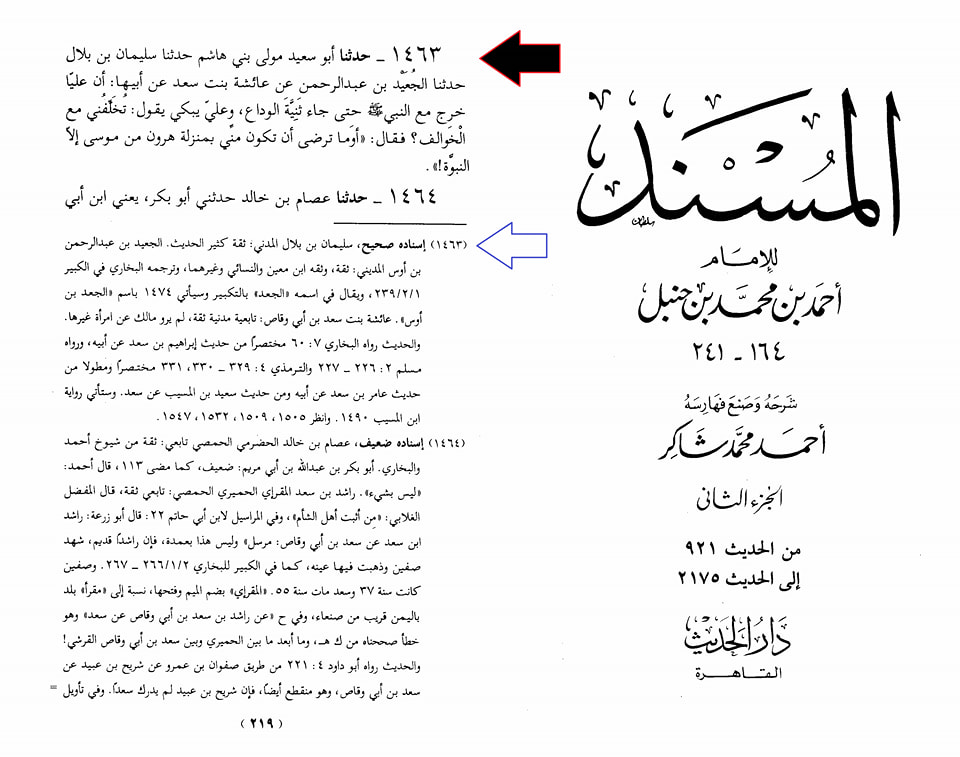 المسند
للإمام
أحمد بن محمد بن حنبل
١٦٤ - ٢٤١
شرحه وصنع فهارسه
أحمد محمد شاكر
الجزء الثانى
من الحديث ٩٢١
إلى الحديث ٢١٧٥
دار الحديث
القاهرة
١٤٦٣ ـ حدثنا أبو سعيد مولى بني هاشم حدثنا سليمان بن بلال
حدثنا الجُعَيْد بن عبدالرحمن عن عائشة بنت سعد عن أبيها: أن عليّا
خرج مع النبي ﷺ حتى جاء ثَنِيَّةَ الوداع، وعليّ يبكي يقول: تُخَلِّفُني مع
الْخَوالف؟ فقال: «أوَما ترضى أن تكون منّي بمنزلة هرون من موسى إلا
النبوَّة!».
١٤٦٤ ـ حدثنا عصام بن خالد حدثني أبو بكر، يعني ابن أبي
(١٤٦٣) إسناده صحيح، سليمان بن بلال المدني: ثقة كثير الحديث. الجعيد بن عبدالرحمن
بن أوس المديني: ثقة، وثقه ابن معين والنسائي وغيرهما، وترجمه البخاري في الكبير
٢٣٩/٢/١، ويقال في اسمه «الجعد» بالتكبير وسيأتي ١٤٧٤ باسم «الجعد بن
أوس». عائشة بنت سعد بن أبي وقاص: تابعية مدنية ثقة، لم يرو مالك عن امرأة غيرها.
والحديث رواه البخاري ٧: ٦٠ مختصرًا من حديث إبراهيم بن سعد عن أبيه، ورواه
مسلم ٢: ٢٢٦ ـ ٢٢٧ والترمذي ٤: ٣٢٩ ـ ٣٣٠، ٣٣١ مختصرًا ومطولا من
حديث عامر بن سعد عن أبيه ومن حديث سعيد بن المسيب عن سعد. وستأتي رواية
ابن المسيب ١٤٩٠. وانظر ١٥٠٥، ١٥٠٩، ١٥٣٢، ١٥٤٧.
(١٤٦٤) إسناده ضعيف، عصام بن خالد الحضرمي الحمصي تابعي: ثقة من شيوخ أحمد
والبخاري. أبو بكر بن عبدالله بن أبي مريم: ضعيف، كما مضى ١١٣، قال أحمد:
«ليس بشيء». راشد بن سعد المقرايَ الحميري الحمصي: تابعي ثقة، قال المفضل
الغلابي: «مِن أثبت أهل الشأم»، وفي المراسيل لابن أبي حاتم ٢٢: قال أبو زرعة: راشد
ابن سعد عن سعد بن أبي وقاص: مرسل» وليس هذا بعمدة، فإن راشدًا قديم، شهد
صفين وذهبت فيها عينه، كما في الكبير للبخاري ٢٦٦/١/٢ ـ ٢٦٧. وصفين
كانت سنة ٣٧ وسعد مات سنة ٥٥. «المقرإي» بضم الميم وفتحها، نسبة إلى «مقرأ» بلد
باليمن قريب من صنعاء، وفي ح «عن راشد بن سعد بن أبي وقاص عن سعد» وهو
خطأ صححناه من ك هـ، وما أبعد ما بين الحميري وبين سعد بن أبي وقاص القرشي!
والحديث رواه أبو داود ٤: ٢٢١ من طريق صفوان بن عمرو عن شريح بن عبيد عن
سعد بن أبي وقاص، وهو منقطع أيضًا، فإن شريح بن عبيد لم يدرك سعدًا. وفي تأويل =
(٢١٩)